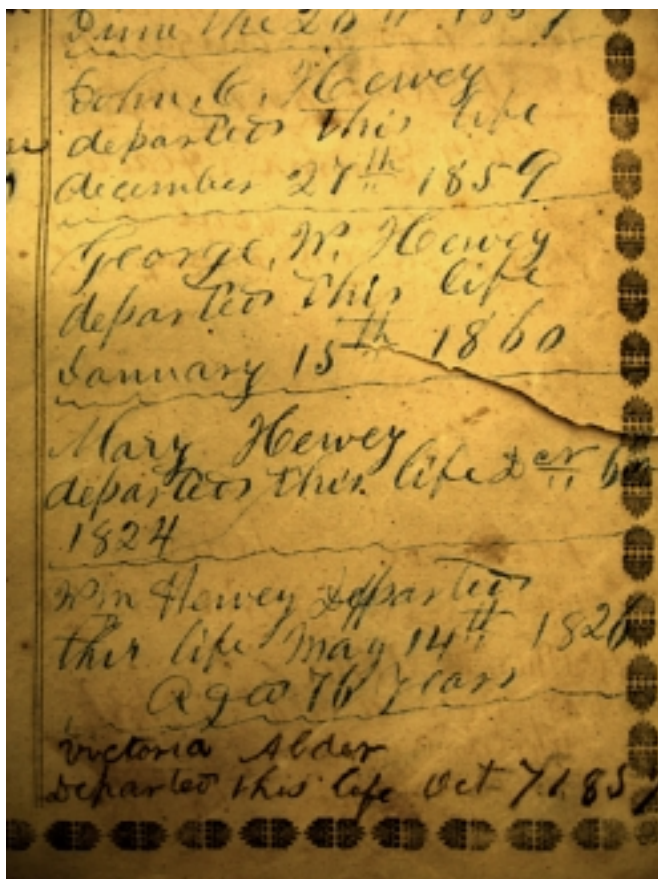 the 26th 1859
John, C, Hewey
departed this life
december 27th 1859
George, W, Hewey
departed this life
January 15th 1860
Mary Hewey
departed this life
1824
Wm Hewey Departed
this life May 14th 1826
Aged 76 years
Victoria Alder
Departed this life Oct 7 185